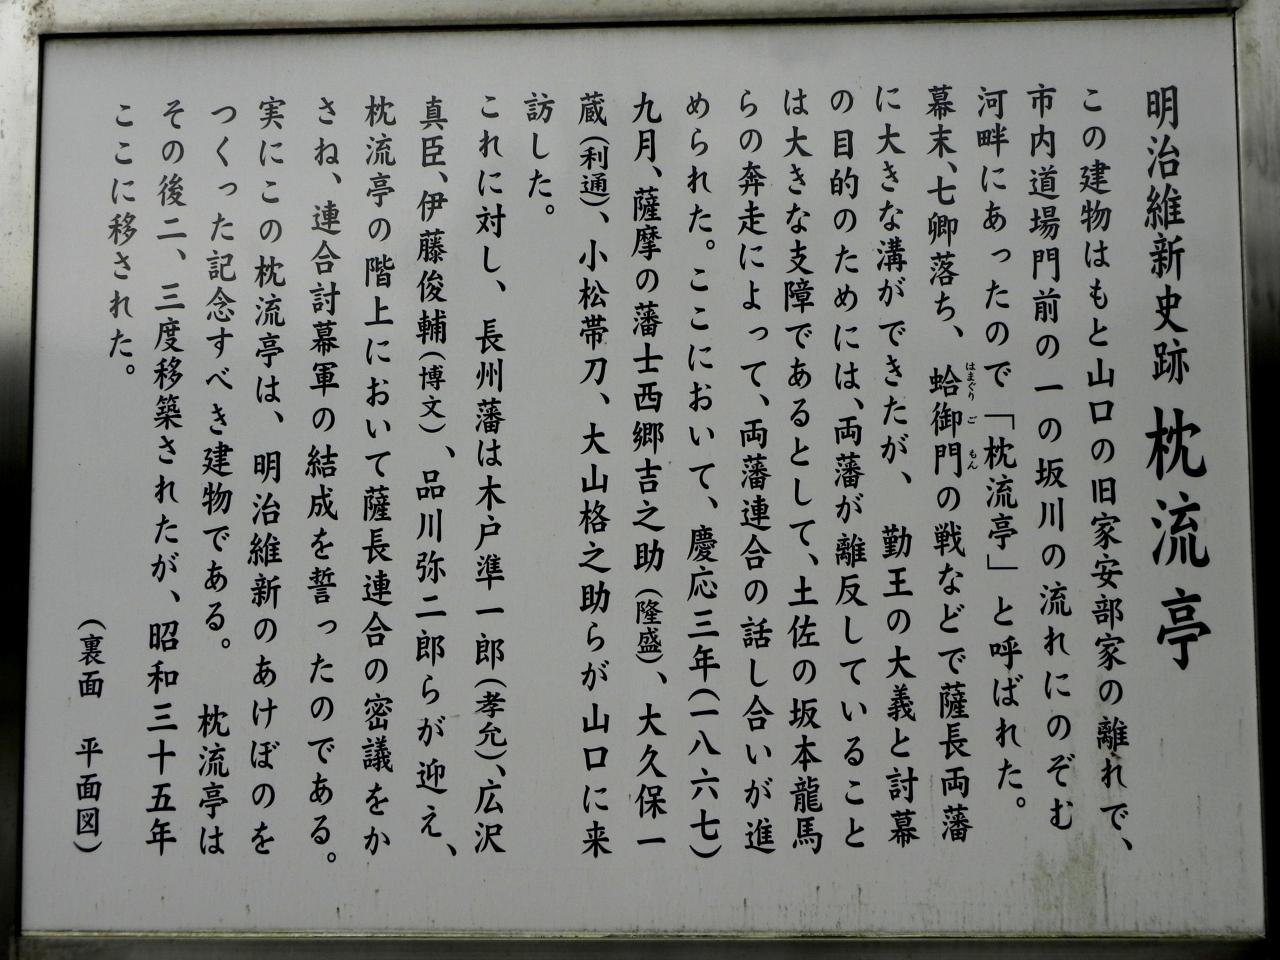 明治維新史跡 枕流亭
この建物はもと山口の旧家安部家の離れで、
市内道場門前の一の坂川の流れにのぞむ
河畔にあったので「枕流亭」と呼ばれた。
幕末、七卿落ち、蛤御門の戦などで薩長両藩
はまぐりごもん
に大きな溝ができたが、勤王の大義と討幕
の目的のためには、両藩が離反していること
は大きな支障であるとして、土佐の坂本龍馬
らの奔走によって、両藩連合の話し合いが進
められた。ここにおいて、慶応三年(一八六七)
九月、薩摩の藩士西郷吉之助(隆盛)、大久保一
蔵(利通)、小松帯刀、大山格之助らが山口に来
訪した。
これに対し、長州藩は木戸準一郎(孝允)、広沢
真臣、伊藤俊輔(博文)、品川弥二郎らが迎え、
枕流亭の階上において薩長連合の密議をか
さね、連合討幕軍の結成を誓ったのである。
実にこの枕流亭は、明治維新のあけぼのを
つくった記念すべき建物である。 枕流亭は
その後二、三度移築されたが、昭和三十五年
ここに移された。
(裏面 平面図)